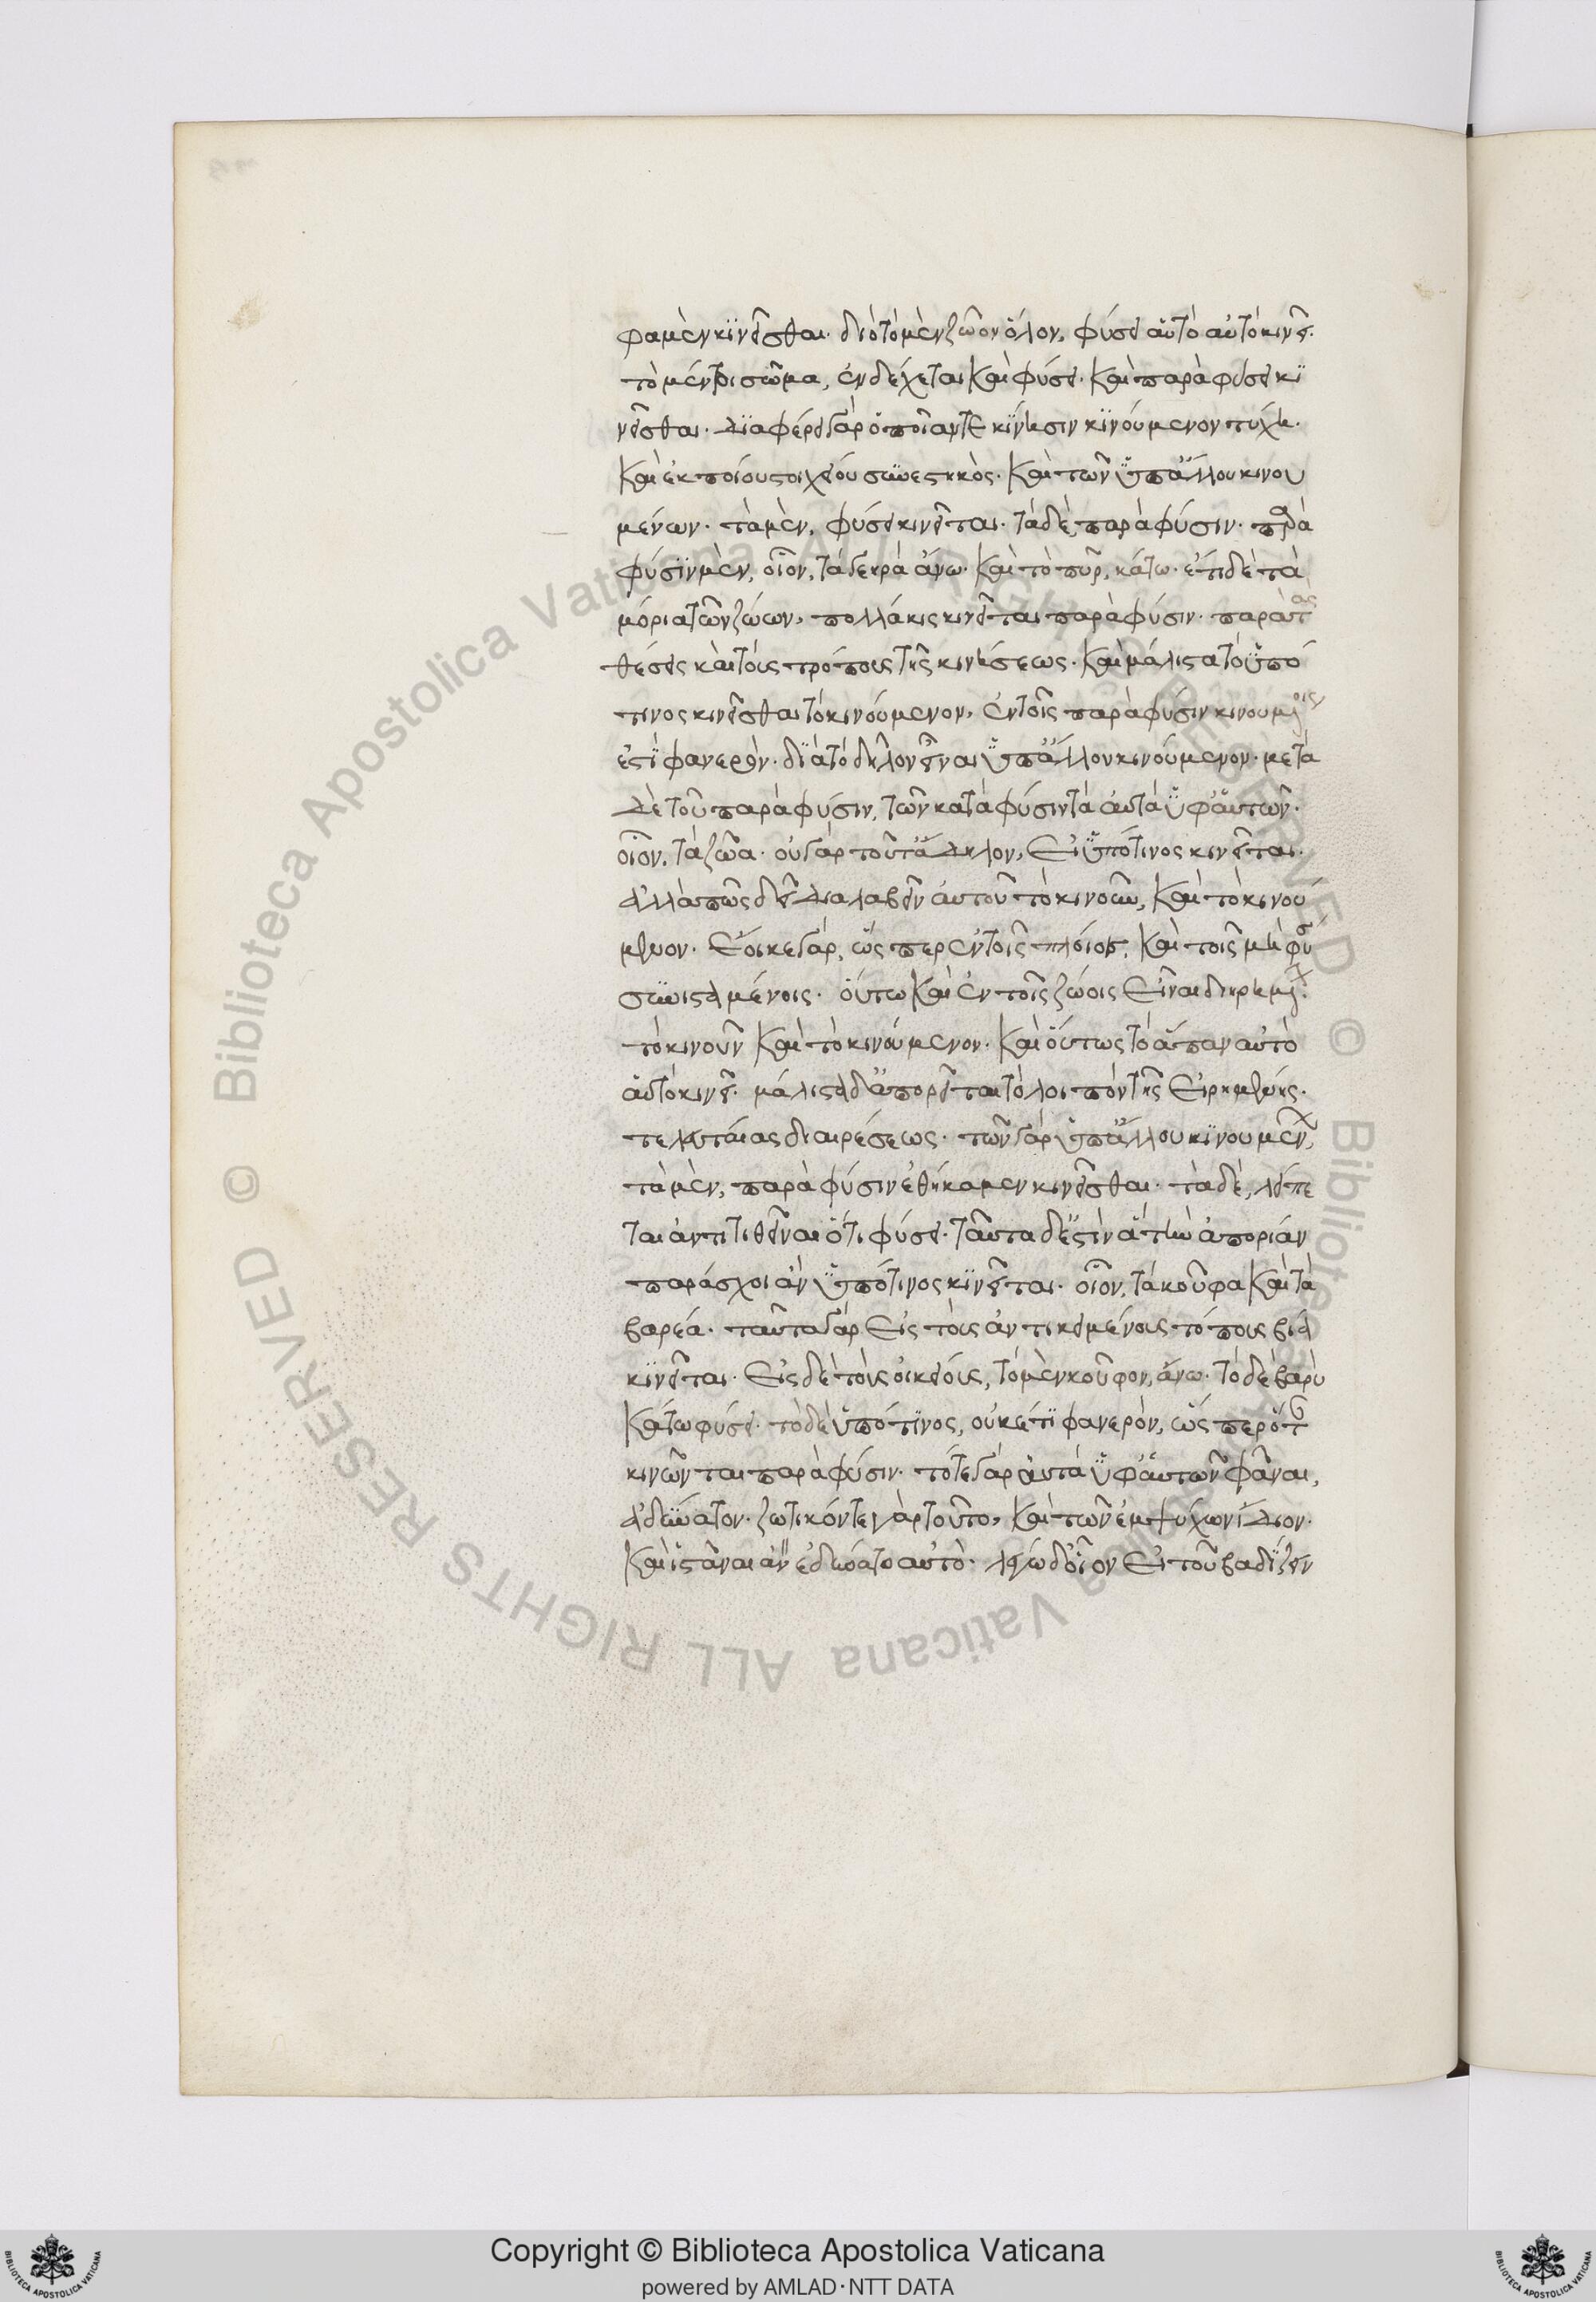 φαμὲν κϊνεῖσθαι· διὸ τὸ μὲν ζῶον ὅλον, φύσει αὐτὸ αὑτὸ κινεῖ·
τὸ μέντοι σῶμα, ἐνδέχεται καὶ φύσει· καὶ παρὰ φύσει κϊ
νεῖσθαι· διαφέρει γὰρ ὁποίαν τε κίνησιν κϊνούμενον τύχη·
καὶ ἐκ ποίου στοιχείου συνεστηκὸς· καὶ τῶν ὑπ᾽ ἄλλου κινου
μένων· τὰ μὲν, φύσει κινεῖται· τὰ δὲ, παρὰ φύσιν· παρὰ
φύσϊν μὲν, οἷον, τὰ γεηρὰ ἄνω· καὶ τὸ πῦρ, κάτω· ἔτι δὲ τὰ
μόρια τῶν ζώων, πολλάκις κινεῖται παρὰ φύσιν· παρὰ τὰς
θέσεις καὶ τοὺς τρόπους τῆς κινήσεως· καὶ μάλιστα τὸ ὑπό
τινος κινεῖσθαι τὸ κινούμενον, ἐν τοῖς παρὰ φύσιν κινουμένοις
ἐστὶ φανερὸν· διὰ τὸ δῆλον εἶναι ὑπ᾽ ἄλλου κινούμενον· μετὰ
δὲ τοῦ παρὰ φύσιν, τῶν κατὰ φύσιν τὰ αὐτὰ ὑφ᾽ αὑτῶν·
οἷον, τὰ ζῶα· οὐ γὰρ τοῦτ᾽ ἄδηλον, εἰ ὑπό τινος κινεῖται·
ἀλλὰ πῶς δεῖ διαλαβεῖν αὐτοῦ τὸ κινοῦν, καὶ τὸ κινού
μενον· ἔοικε γὰρ, ὥσπερ ἐν τοῖς πλοίοις, καὶ τοῖς μὴ φύσει
συνισταμένοις· οὕτω καὶ ἐν τοῖς ζώοις εἶναι διῃρημένον
τὸ κινοῦν καὶ τὸ κινούμενον· καὶ οὕτως τὸ ἅπαν αὐτὸ
αὑτὸ κινεῖ· μάλιστα δ᾽ ἀπορεῖται τὸ λοιπὸν τῆς εἰρημένης·
τελευταίας διαιρέσεως· τῶν γὰρ ὑπ᾽ ἄλλου κϊνουμένων,
τὰ μὲν, παρὰ φύσιν ἐθήκαμεν κινεῖσθαι· τὰ δὲ, λείπε
ται ἀντιτιθεῖναι ὅτι φύσει· ταῦτα δ᾽ ἐστὶν ἃ τὴν ἀπορίαν
παράσχοι ἂν ὑπό τινος κϊνεῖται· οἷον, τὰ κοῦφα καὶ τὰ
βαρέα· ταῦτα γὰρ εἰς τοὺς ἀντικειμένους τόπους βίᾳ
κϊνεῖται· εἰς δὲ τοὺς οἰκείους, τὸ μὲν κοῦφον, ἄνω· τὸ δὲ βαρὺ
κάτω φύσει· τὸ δὲ ὑπό τϊνος, οὐκέτϊ φανερὸν, ὥσπερ ὅταν
κινῶνται παρὰ φύσιν· τό τε γὰρ αὐτὰ ὑφ᾽ αὑτῶν φάναι,
ἀδύνατον· ζωτικόν τε γὰρ τοῦτο, καὶ τῶν ἐμψύχων ἴδιον·
καὶ ἱστάναι ἂν ἐδύνατο αὑτὸ· λέγω δ᾽ οἷον εἰ τοῦ βαδίζειν